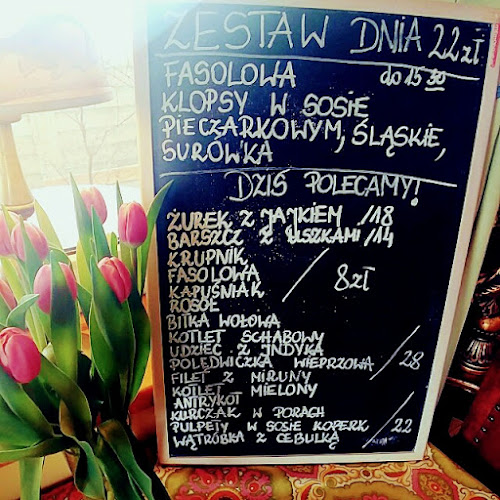 ZESTAW DNIA 22zł
FASOLOWA do 15 30
KLOPSY W SOSIE
PIECZARKOWYM, ŚLĄSKIE,
SURÓWKA
DZIŚ POLECAMY!
ŻUREK Z JAJKIEM /18
BARSZCZ Z USZKAMI /14
KRUPNIK
FASOLOWA / 8zł
KAPUŚNIAK
ROSÓŁ
BITKA WOŁOWA
KOTLET SCHABOWY
UDZIEC Z INDYKA
POLĘDWICZKA WIEPRZOWA /28
FILET Z MIRUNY
KOTLET MIELONY
ANTRYKOT
KURCZAK W PORACH
PULPETY W SOSIE KOPERK / 22
WĄTRÓBKA Z CEBULKĄ